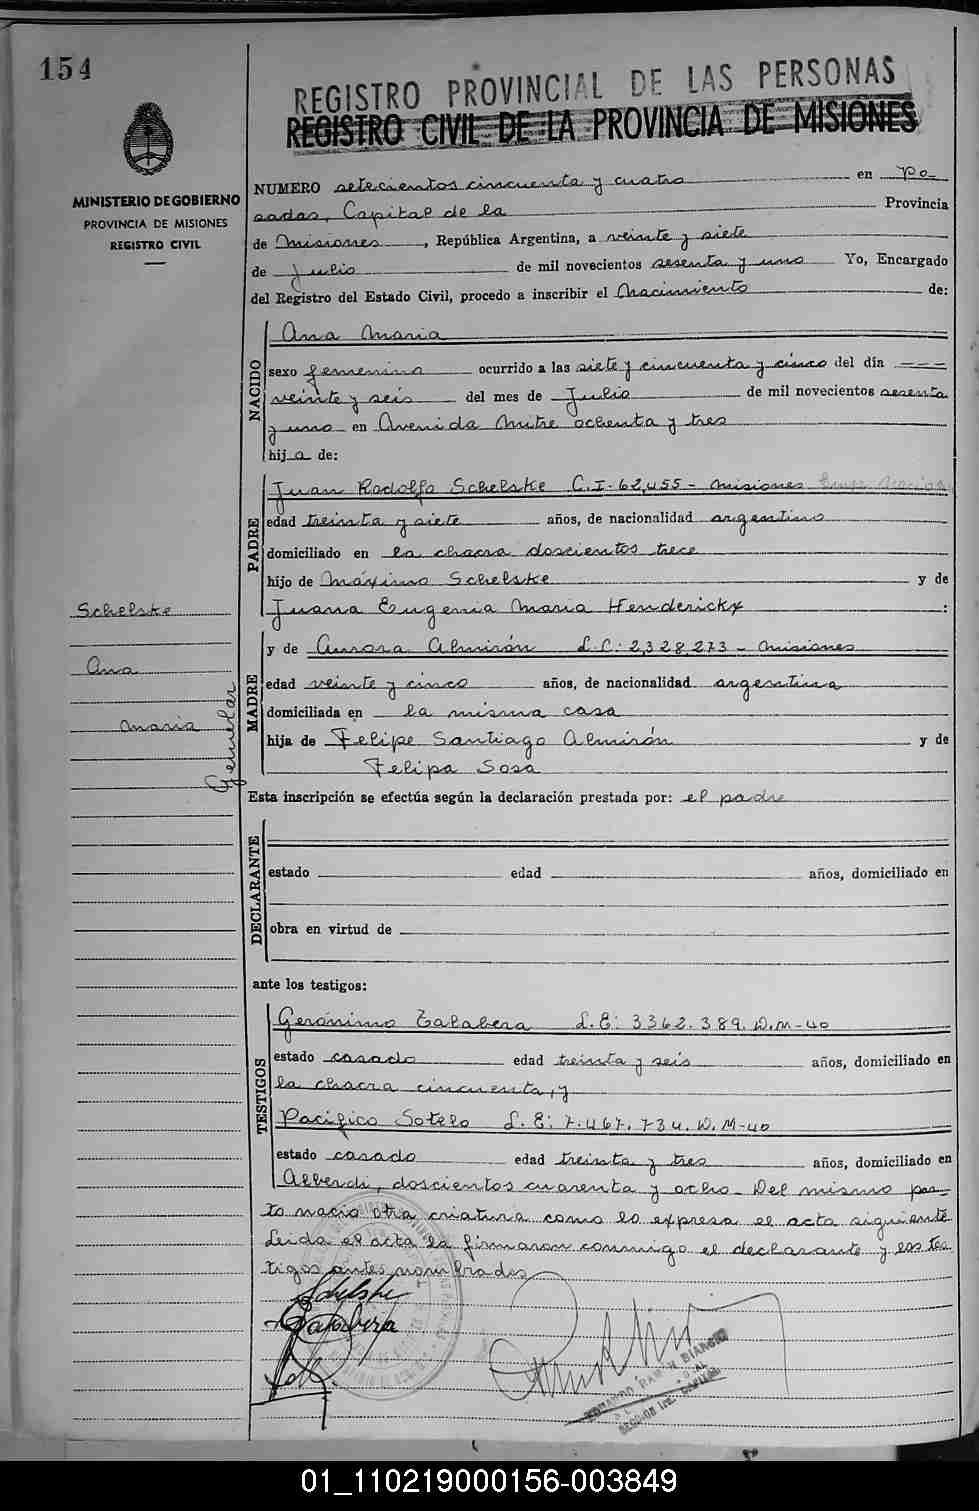 154
REGISTRO PROVINCIAL DE LAS PERSONAS
REGISTRO CIVIL DE LA PROVINCIA DE MISIONES
MINISTERIO DE GOBIERNO
PROVINCIA DE MISIONES
REGISTRO CIVIL
NUMERO setecientos cincuenta y cuatro en Po-
sadas, Capital de la Provincia
de Misiones, República Argentina, a veinte y siete
de Julio de mil novecientos sesenta y uno Yo, Encargado
del Registro del Estado Civil, procedo a inscribir el Nacimiento de:
NACIDO
Ana Maria
sexo femenino ocurrido a las siete y cincuenta y cinco del día ---
veinte y seis del mes de Julio de mil novecientos sesenta
y uno en Avenida Mitre ochenta y tres
hij a de:
PADRE
Juan Rodolfo Schelske C.I. 62,455 - Misiones
edad treinta y siete años, de nacionalidad argentino
domiciliado en la chacra doscientos trece
hijo de Máximo Schelske y de
Juana Eugenia Maria Henderickx :
MADRE
y de Aurora Almirón L.C: 2,328,273 - Misiones
edad veinte y cinco años, de nacionalidad argentina
domiciliada en la misma casa
hija de Felipe Santiago Almirón y de
Felipa Sosa
Schelske
Ana
Maria
Gemelar
Esta inscripción se efectúa según la declaración prestada por: el padre
DECLARANTE
estado edad años, domiciliado en
obra en virtud de
ante los testigos:
TESTIGOS
Gerónimo Talabera L.E: 3362.389. D.M-40
estado casado edad treinta y seis años, domiciliado en
la chacra cincuenta, y
Pacífico Sotelo L.E: 7.467.734. D.M-40
estado casado edad treinta y tres años, domiciliado en
Alberdi, doscientos cuarenta y ocho - Del mismo par-
to nació otra criatura como lo expresa el acta siguiente
Leida el acta la firmaron conmigo el declarante y los tes-
tigos antes nombrados
Schelske
Talabera
RAMON BIANCHI
SECCION 1ra. CAPITAL
01_110219000156-003849